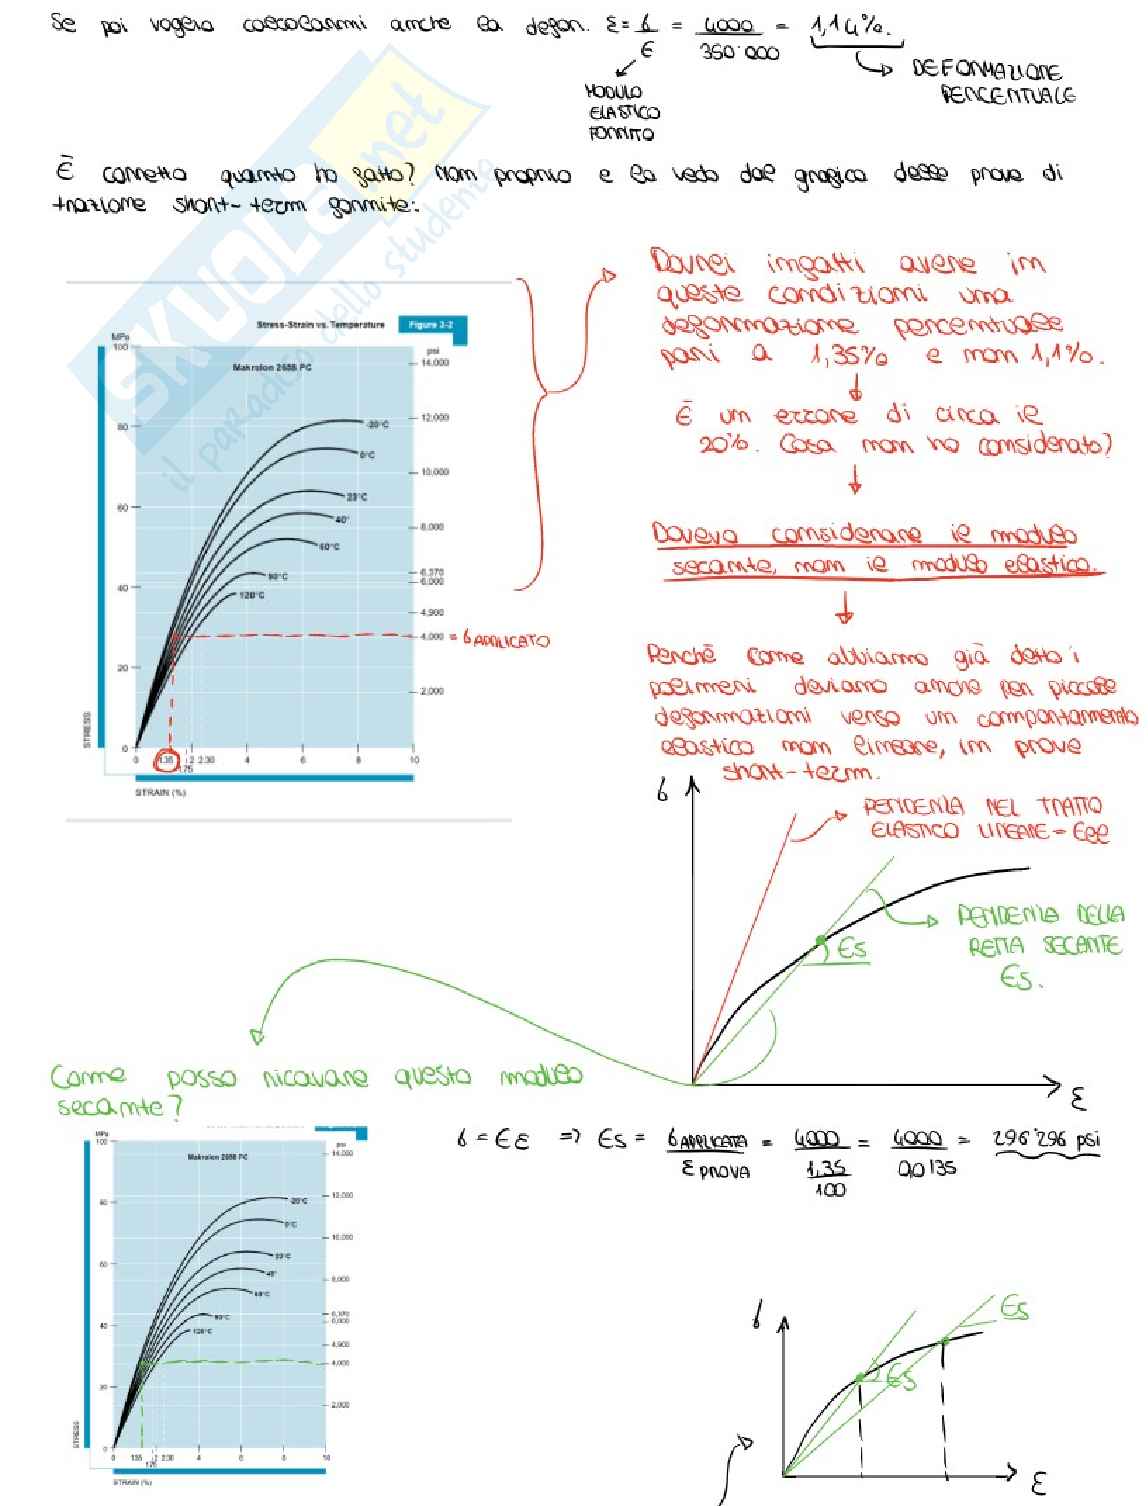 Se poi voglio calcolarmi anche la deform. ε = σ/E = 4000/350'000 = 1,14%.
MODULO
ELASTICO
FORNITO
DEFORMAZIONE
PERCENTUALE
È corretto quanto ho fatto? Non proprio e lo vedo dal grafico delle prove di
trazione short-term fornite:
SKUOLA.net
il paradiso dello studente
Stress-Strain vs. Temperature
Figure 3-2
MPa
psi
Makrolon 2608 PC
100
80
60
40
20
0
14,000
12,000
10,000
8,000
6,370
6,000
4,900
4,000 = σ APPLICATO
2,000
-20°C
0°C
23°C
40°
60°C
90°C
120°C
STRESS
0 1.35 2 2.30 4 6 8 10
1.75
STRAIN (%)
Dovrei infatti avere in
queste condizioni una
deformazione percentuale
pari a 1,35% e non 1,1%.
È un errore di circa il
20%. Cosa non ho considerato?
Dovevo considerare il modulo
secante, non il modulo elastico.
Perché come abbiamo già detto i
polimeri deviano anche per piccole
deformazioni verso un comportamento
elastico non lineare, in prove
short-term.
σ
PENDENZA NEL TRATTO
ELASTICO LINEARE = Eel
PENDENZA DELLA
RETTA SECANTE
Es.
Es
ε
Come posso ricavare questo modulo
secante?
σ = Eε => Es = σ APPLICATA / ε PROVA = 4000 / (1,35/100) = 4000/0,0135 = 296'296 psi
MPa
psi
Makrolon 2608 PC
100
80
60
40
20
0
14,000
12,000
10,000
8,000
6,370
6,000
4,900
4,000
2,000
-20°C
0°C
23°C
40°
60°C
90°C
120°C
STRESS
0 1.35 2 2.30 4 6 8 10
1.75
STRAIN (%)
σ
Es
Es
ε